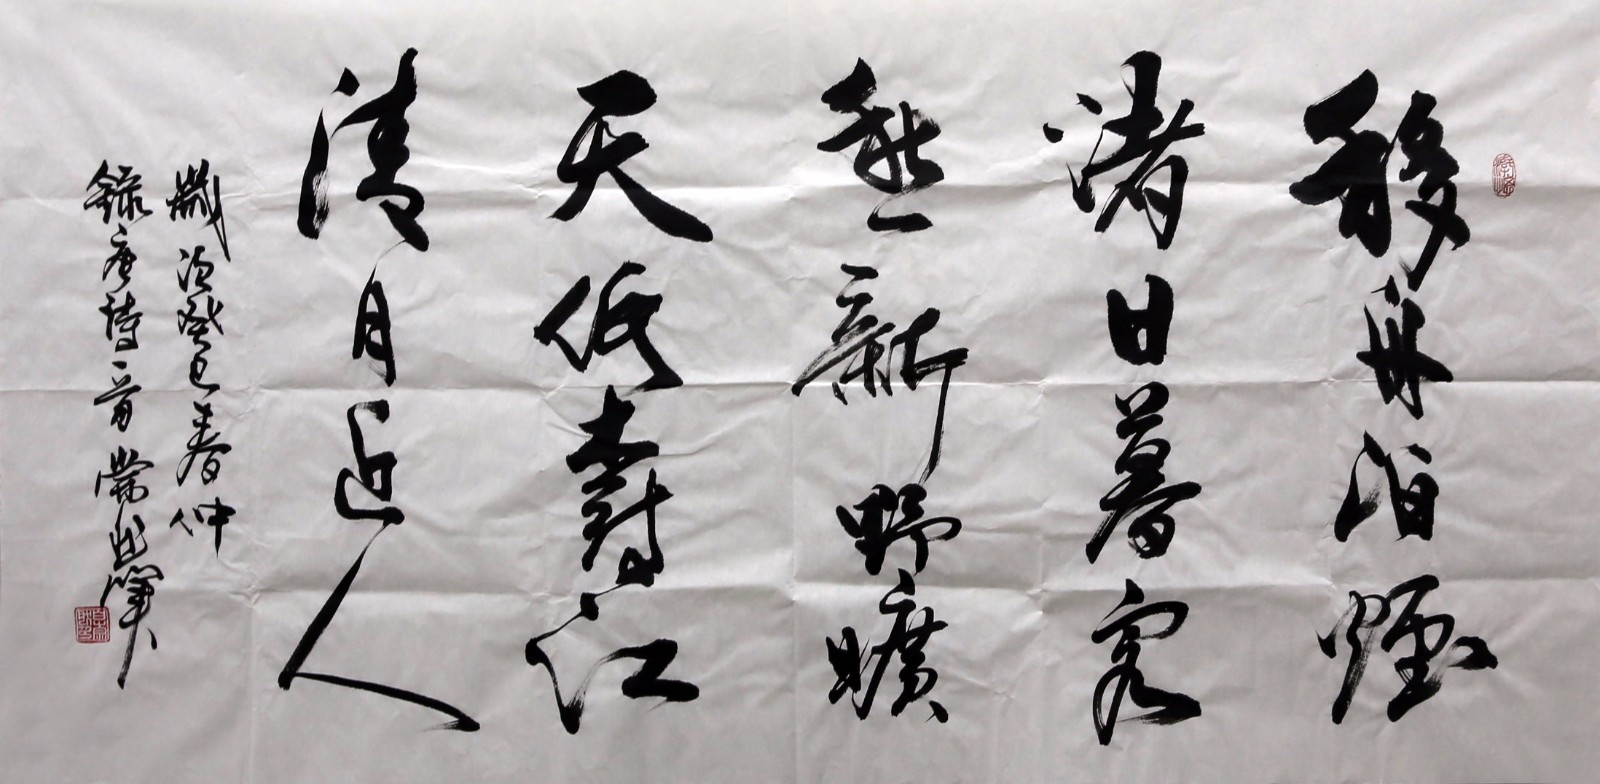 移舟泊烟
渚日暮客
愁新野旷
天低树江
清月近人
岁次癸巳春仲
录唐诗一首